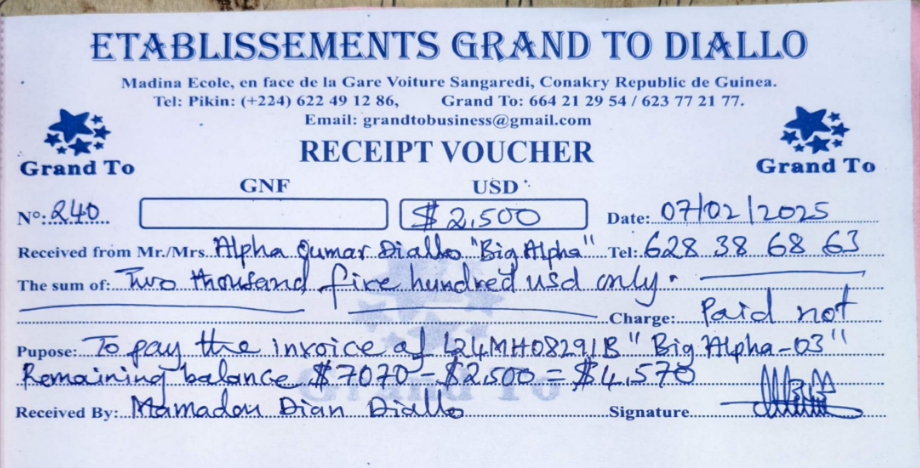 ETABLISSEMENTS GRAND TO DIALLO
Madina Ecole, en face de la Gare Voiture Sangaredi, Conakry Republic de Guinea.
Tel: Pikin: (+224) 622 49 12 86, Grand To: 664 21 29 54 / 623 77 21 77.
Email: grandtobusiness@gmail.com
Grand To
RECEIPT VOUCHER
Grand To
GNF USD
N°: 240 $ 2,500 Date: 07/02/2025
Received from Mr./Mrs. Alpha Oumar Diallo "Big Alpha" Tel: 628 38 68 63
The sum of: Two thousand five hundred usd only.
Charge: Paid not
Pupose: To pay the invoice of L24MH0829 "Big Alpha-03"
Remaining balance $7070 - $2,500 = $4,570
Grand To
Received By: Mamadou Dian Diallo Signature